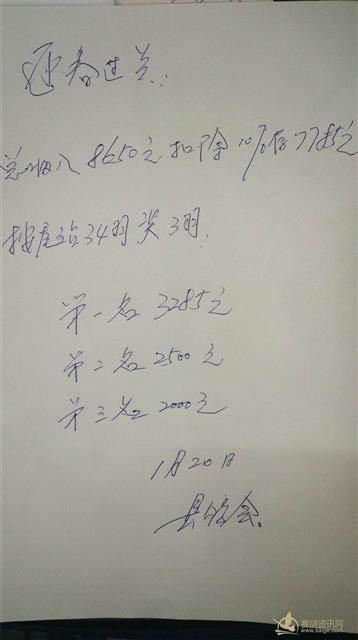 迎春过关:
总收入8650元扣除10%存7785元
按底站34羽奖3羽.
第一名 3285元
第二名 2500元
第三名 2000元
1月20日
县鸽会.
赛鸽资讯网
www.saige.com